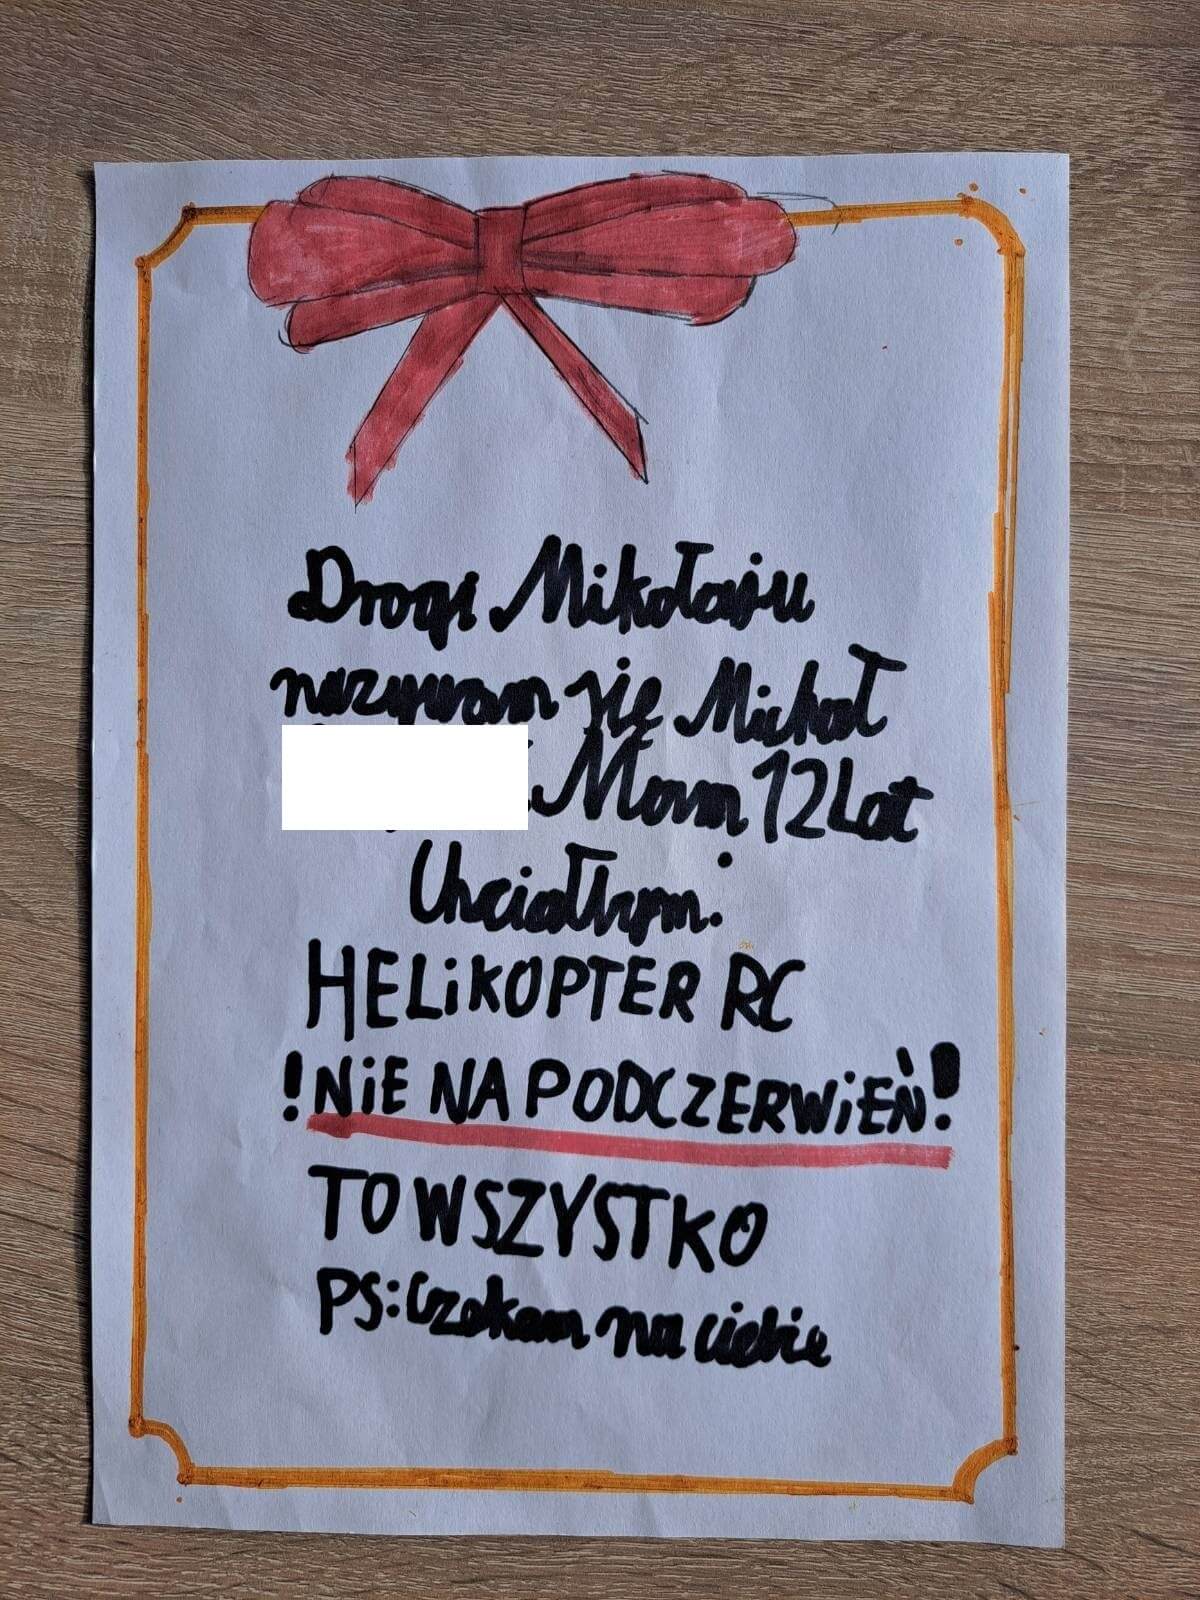 Drogi Mikołaju
nazywam się Michał
Mam 12 Lat
Chciałbym:
HELiKOPTER RC
!NiE NA PODCZERWiEŃ!
TO WSZYSTKO
PS: Czekam na ciebie